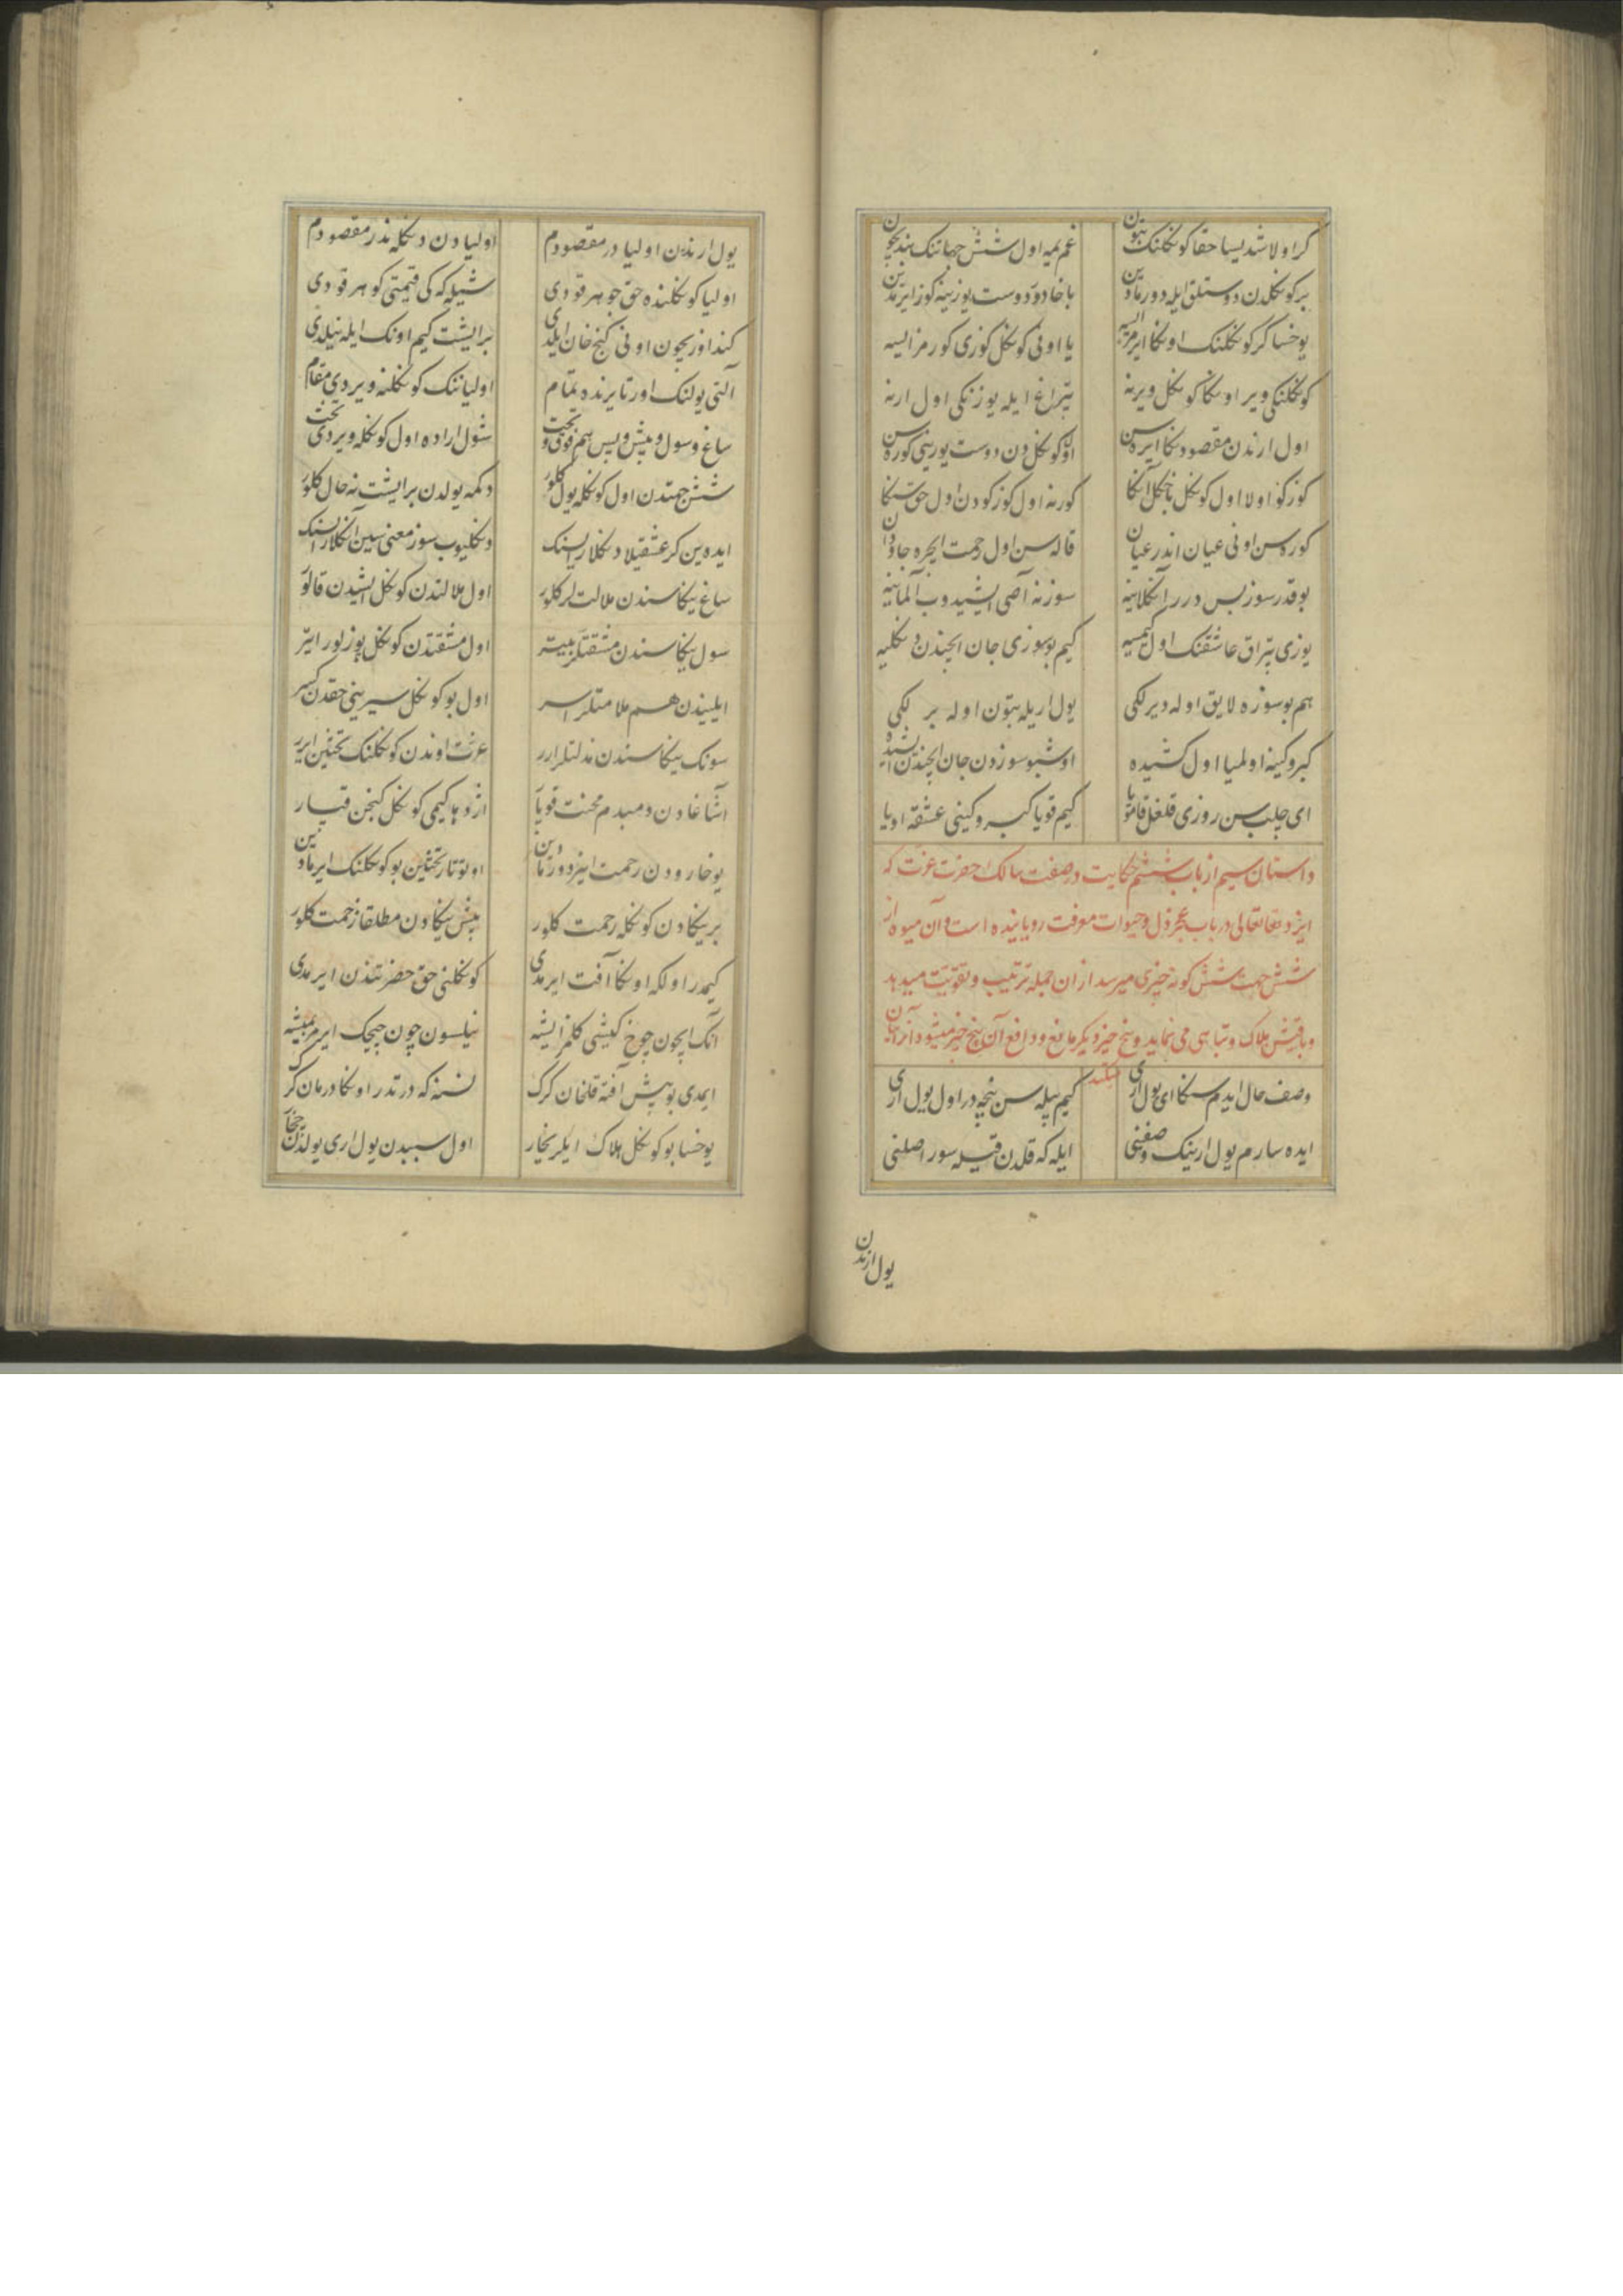 كر اولاشدیسا حقا كوكلنك بتون غم یمه اول شش جهاتنك بندیچون
بر كوكلدن دوستلق ایله دورمادین باخادور دوست یوزینه كوز ایرمدین
یوخسا كر كوكلنك اوكا ایرمز ایسه یا اونی كوكل كوزی كورمز ایسه
كوكلنكی ویر اوكا كوكل ویرنه تپراغ ایله یوزنكی اول ارنه
اول ارندن مقصودكا ایره سن اول كوكلدن دوست یوزینی كوره سن
كوزكو اولا اول كوكل باخكل آنكا كورنه اول كوزكودن اول حق سكا
كوره سن اونی عیان اندر عیان قاله سن اول رحمت ایچره جاودان
بو قدر سوز بس درر آكلاینه سوزنه آصی ایشیدوب آلماینه
یوزی تپراق عاشقنك اول كیمسیه كیم بو سوزی جان ایچندن دكلیه
هم بو سوزه لایق اوله دیرلكی یول اریله بتون اوله بر لكی
كبر و كینه اولمیا اول كشیده اوشبو سوزدن جان ایچندن ایشیده
ای چلب سن روزی قلغل قامویا كیم قویا كبر و كینی عشقه اویا
داستان سیم از باب ششم حكایت در صفت سالك حضرت عزت كه
ایزد تعالی در باب عجز دل و حیوات معرفت رویانیده است و آن میوه از
شش جهت شش كونه چیزی میرسد از ان جمله ترتیب و تقویت میدهد
و باقیش هلاك و تباهی می نماید و پنج چیز دیكر مانع و دافع آن پنج چیز میشود
وصف حال ایدم سكا ای یول اری كیم بیله سن نیچه در اول یول اری
ایده سارم یول ارینك وصفنی ایله كه قلدن قیله سور اصلنی
یول ارندن
یول ارندن اولیا در مقصودم اولیادن دكله ندر مقصودم
اولیا كوكلنده حق جوهر قودی شیله كه كی قیمتی كوهر قودی
كندوزیچون اونی كنج خان ایلدی بر ایشت كیم اونك ایله نیلدی
آلتی یولنك اورتا یرنده تمام اولیانك كوكلنه ویردی مقام
ساغ و سول و پیش و پس هم فوق و تحت شول اراده اول كوكله ویردی تخت
شش جهتدن اول كوكله یول كلور دكمه یولدن بر ایشت نه حال كلور
ایده ین كر عشقیلا دكلارسنك دكلیوب سوز معنی سین آكلارسنك
ساغ یكاسندن ملالتلر كلور اول ملالتدن كوكل ایشدن قالور
سول یكاسندن مشقتلر یته اول مشقتدن كوكل
ایلیندن هم ملامتلر اسر اول بو كوكل سیرینی حقدن كسر
سونك یكاسندن مذلتلر ارر عزت اوندن كوكلنك تختین ایرر
اشاغادن دمبدم محنت قویار اژدها كیمی كوكل كنجن قپار
یوخارودن رحمت اینر دورمادین اول توتار تختین بو كوكلنك ایرمادین
بر یكادن كوكله رحمت كلور بیش یكادن مطلقا زحمت كلور
كیمدر اول كه اوكا آفت ایرمدی كوكلنی حق حضرتندن ایرمدی
انك ایچون چوخ كیشی كلمز ایشه نیلسون چون چیچك ایرمز یمیشه
ایمدی بو بیش آفته قلخان كرك نسنه كه دردتدر اوكا درمان كرك
یوخسا بو كوكل هلاك ایلر یخار اول سببدن یول اری یولدن چخار